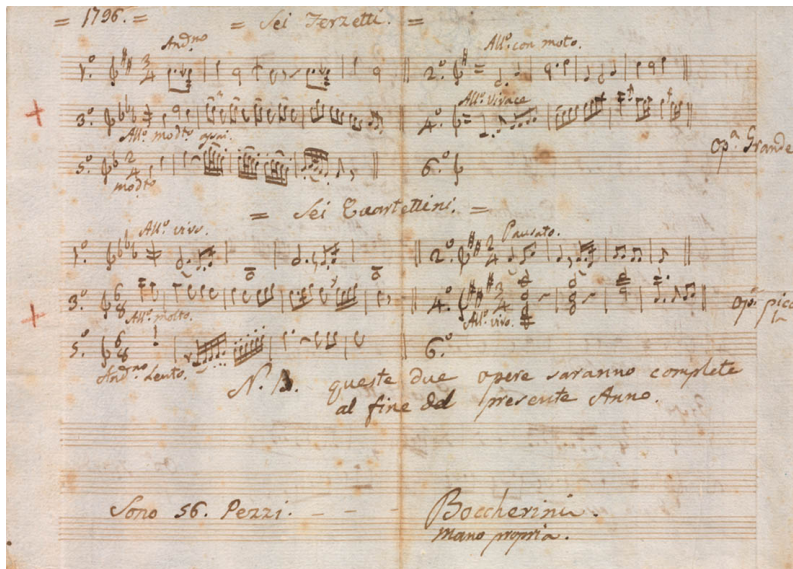 = 1796. = = Sei Terzetti. =
And.no All.o con moto.
1.o 2.o
All.o vivace
3.o 4.o
All.o modto. Op.a Grande
5.o 6.o
modto
= Sei Quartettini. =
All.o vivo. Pausato.
1.o 2.o
3.o 4.o
All.o molto. All.o vivo. Op.a
5.o 6.o
And.no Lento.
N. B. queste due opere saranno complete
al fine del presente Anno.
Sono 56. Pezzi. - - - Boccherini.
mano propria.